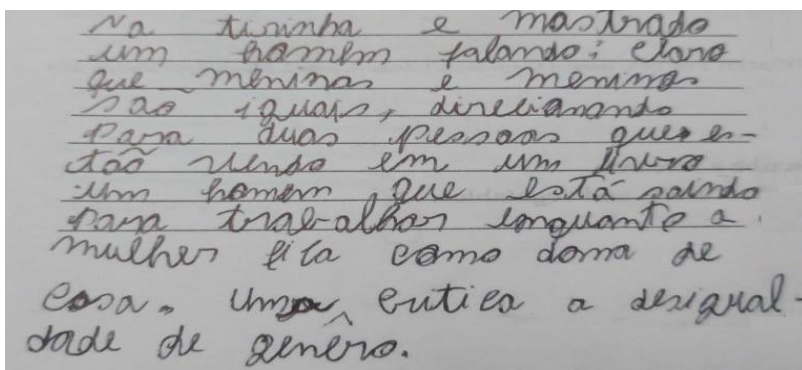 Na tirinha e mostrado
um homem falando: claro
que meninas e meninos
são iguais, direcionando
para duas pessoas que es-
tão vendo em um livro
um homem que está saindo
para trabalhar enquanto a
mulher fica como dona de
casa. Uma critica a desigual-
dade de genêro.